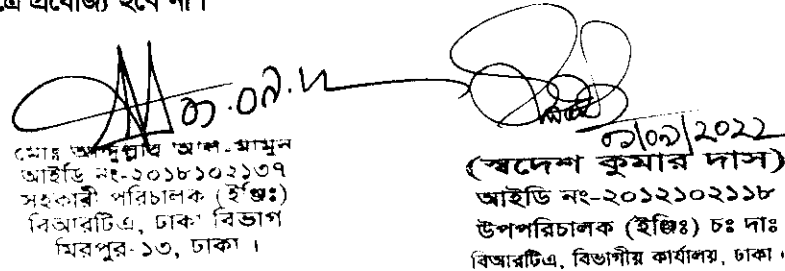 প্রযোজ্য হবে না।
০১.০৯.২২
মোঃ আব্দুল্লাহ আল-মামুন
আইডি নং-২০১৮১০২১৩৭
সহকারী পরিচালক (ইঞ্জিঃ)
বিআরটিএ, ঢাকা বিভাগ
মিরপুর-১৩, ঢাকা ।
০১/০৯/2022
(স্বদেশ কুমার দাস)
আইডি নং-২০১২১০২১১৮
উপপরিচালক (ইঞ্জিঃ) চঃ দাঃ
বিআরটিএ, বিভাগীয় কার্যালয়, ঢাকা ।